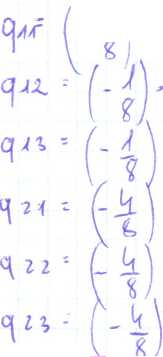 q11= ( 8)
q12 = (-1/8).
q13 = (-1/8)
q21 = (-4/8)
q22 = (-4/8)
q23 = (-4/8)